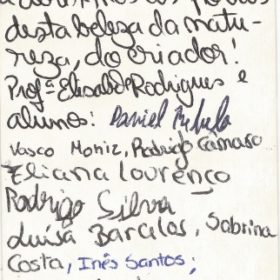 desta beleza da natu-
reza, do criador!
Profª Elisabete Rodrigues e
alunos: Daniel
Vasco Moniz, Rodrigo Camaso
Eliana Lourenço
Rodrigo Silva
Luísa Barcelos, Sabrina
Costa, Inês Santos;